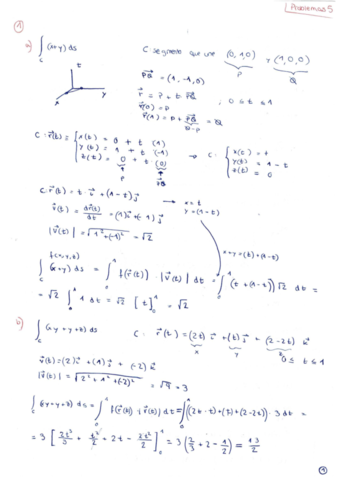 Problemas 5
1
a) ∫_C (x+y) ds
C segmento que une (0,1,0) y (1,0,0)
P Q
PQ = (1,-1,0)
r = P + t PQ
r(0) = P , 0 ≤ t ≤ 1
r(1) = P + PQ = Q
Q-P
C: r(t) = { x(t) = 0 + t (1)
y(t) = 1 + t (-1)
z(t) = 0 + t (0)
P PQ
→ C: { x(t) = t
y(t) = 1 - t
z(t) = 0
C: r(t) = t i + (1-t) j
x = t
y = (1-t)
v(t) = dr(t)/dt = (1) i + (-1) j
|v(t)| = √(1² + (-1)²) = √2
x+y = (t) + (1-t)
f(x,y,z)
∫_C (x+y) ds = ∫_0^1 f(r(t)) · |v(t)| dt = ∫_0^1 (t + (1-t)) √2 dt =
= √2 ∫_0^1 1 dt = √2 [t]_0^1 = √2
b) ∫_C (xy + y + z) ds
C: r(t) = (2t) i + (t) j + (2-2t) k
x y z 0 ≤ t ≤ 1
v(t) = (2) i + (1) j + (-2) k
|v(t)| = √(2² + 1² + (-2)²) = √9 = 3
∫_C (xy + y + z) ds = ∫_0^1 f(r(t)) |v(t)| dt = ∫_0^1 ((2t · t) + (t) + (2-2t)) · 3 dt =
= 3 [2t³/3 + t²/2 + 2t - 2t²/2]_0^1 = 3 (2/3 + 2 - 1/2) = 13/2
1